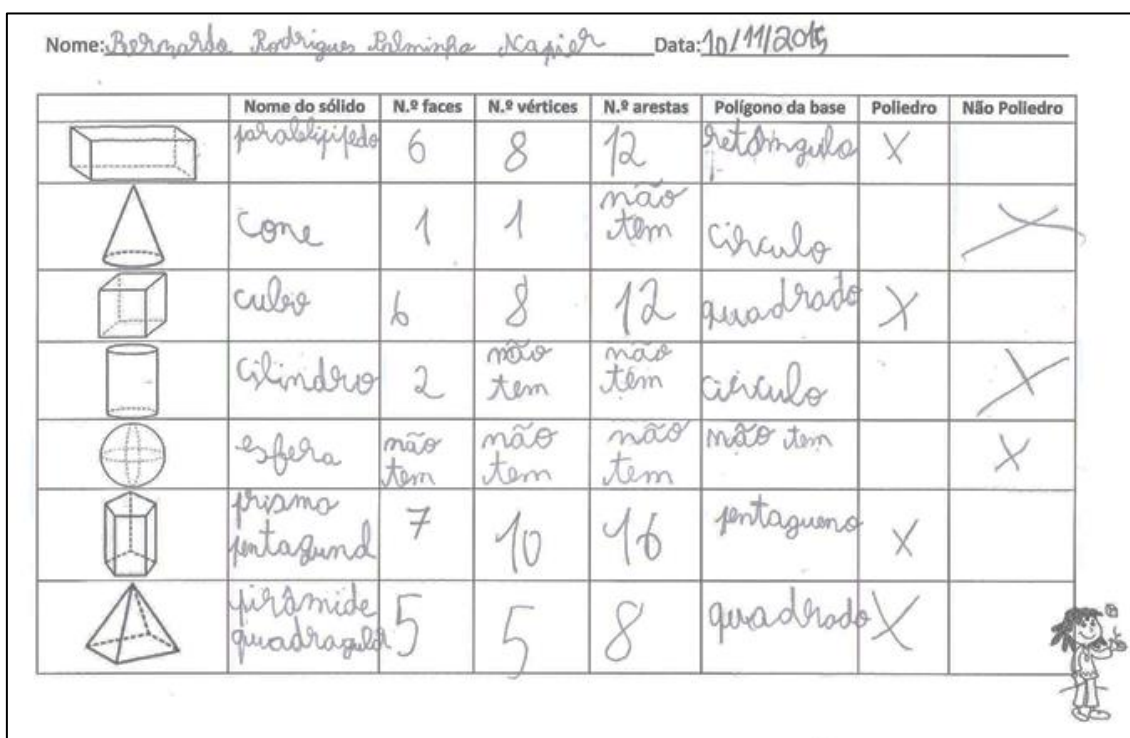 Nome: Bernardo Rodrigues Palminha Napier Data: 10/11/2015
Nome do sólido N.º faces N.º vértices N.º arestas Polígono da base Poliedro Não Poliedro
paralelipipedo 6 8 12 retângulo X
cone 1 1 não tem circulo X
cubo 6 8 12 quadrado X
cilindro 2 não tem não tem circulo X
esfera não tem não tem não tem não tem X
prisma 7 10 16 pentagueno X
piramide quadragular 5 5 8 quadrado X